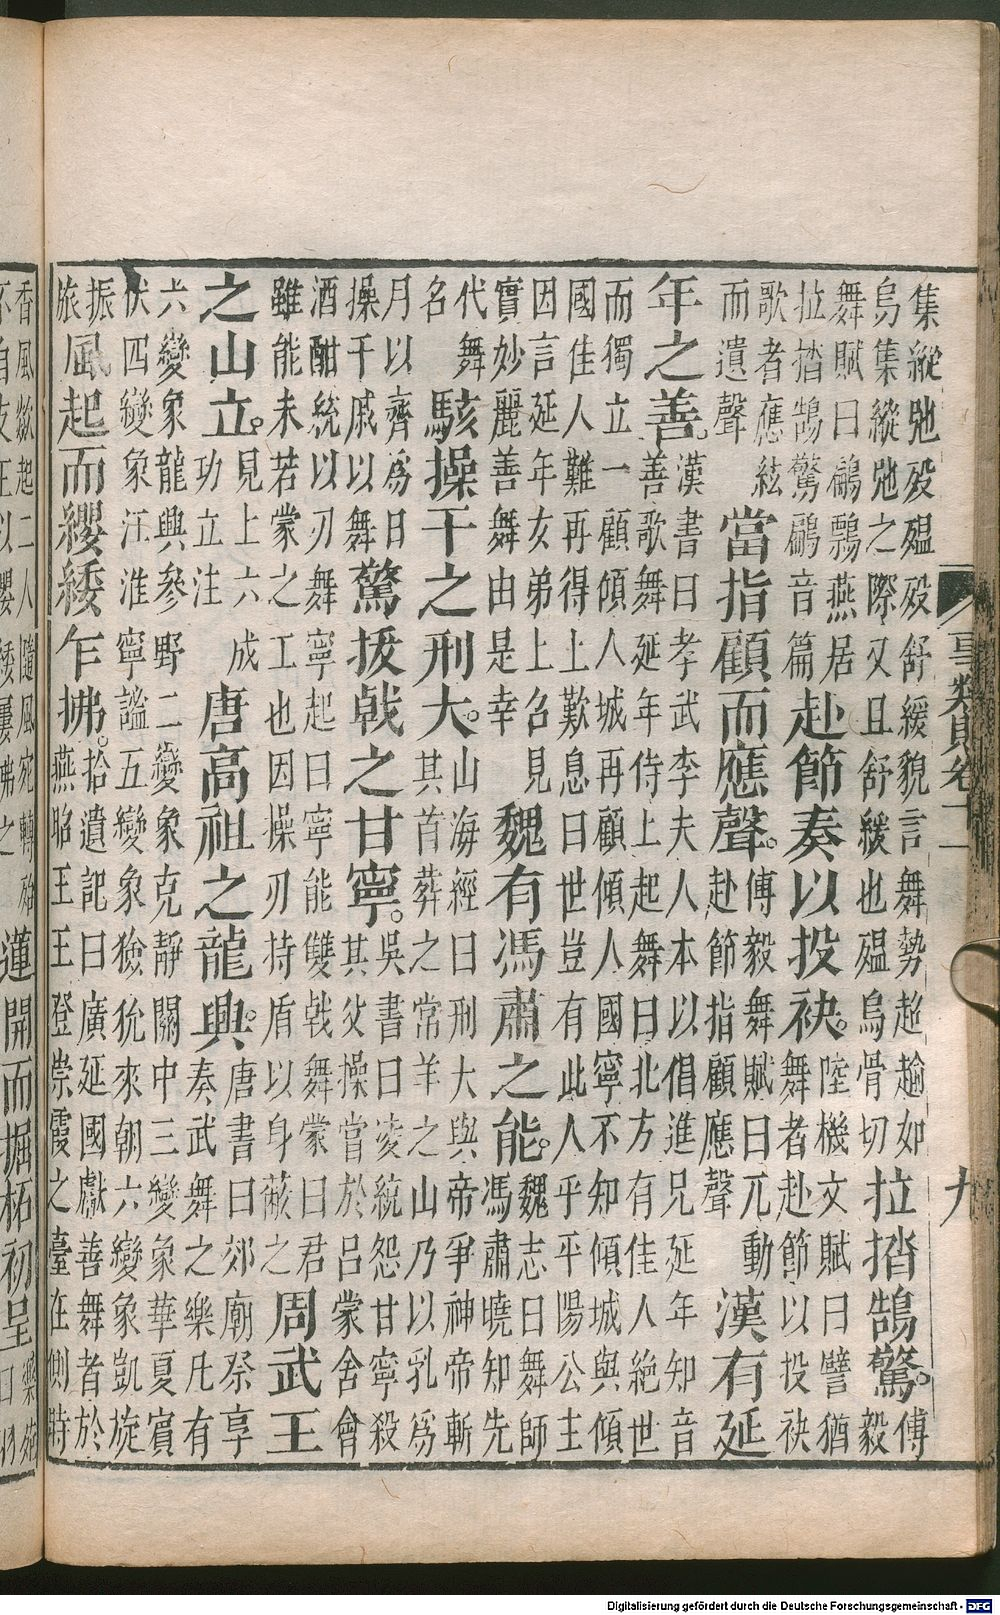 事類賦卷十一
九
集縱弛歿殟歿舒緩貌言舞勢超逾如
烏集縱弛之際又且舒緩也殟烏骨切
拉揩鵠驚。
傅
毅
舞賦曰鶣鷅燕居
拉揩鵠驚鶣音篇
赴節奏以投袂。
陸機文賦曰譬猶
舞者赴節以投袂
歌者應絃
而遺聲
當指顧而應聲。
傅毅舞賦曰兀動
赴節指顧應聲
漢有延
年之善。
漢書曰孝武李夫人本以倡進兄延年知音
善歌舞延年侍上起舞曰北方有佳人絕世
而獨立一顧傾人城再顧傾人國寧不知傾城與傾
國佳人難再得上歎息曰世豈有此人乎平陽公主
因言延年女弟上召見
實妙麗善舞由是幸
魏有馮肅之能。
魏志曰舞師
馮肅曉知先
代舞
名
駭操干之刑大。
山海經曰刑大與帝爭神帝斬
其首葬之常羊之山乃以乳為
月以齊為日
操干戚以舞
驚拔戟之甘寧。
吳書曰凌統怨甘寧殺
其父操當於呂蒙舍會
酒酣統以刃舞寧起曰寧能雙戟舞蒙曰君
雖能未若蒙之工也因操刃持盾以身蔽之
周武王
之山立。
見上六成
功立注
唐高祖之龍興。
唐書曰郊廟祭享
奏武舞之樂凡有
六變象龍興參野二變象克靜關中三變象華夏賓
伏四變象江淮寧謐五變象獫狁來朝六變象凱旋
振
旅
風起而纓緌乍拂。
拾遺記曰廣延國獻善舞者於
燕昭王王登崇霞之臺在側時
香風歘起二人隨風宛轉殆
不自支王以纓緌屢拂之
蓮開而掘柘初呈
樂苑
Digitalisierung gefördert durch die Deutsche Forschungsgemeinschaft - DFG